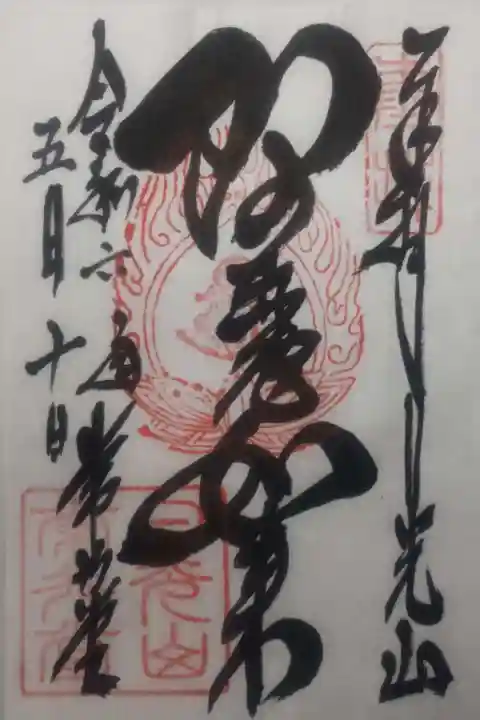 奉拝 日光山
阿弥陀如来
令和六年 常行堂
五月十日